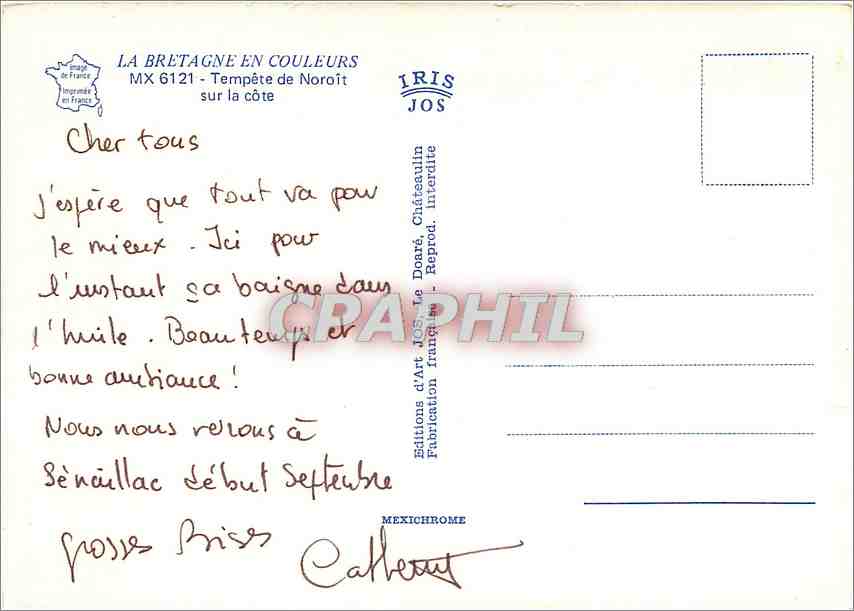 LA BRETAGNE EN COULEURS
MX 6121 - Tempête de Noroît
sur la côte
Image
de France
Imprimée
en France
IRIS
JOS
Cher tous
j'espère que tout va pour
le mieux. Ici pour
l'instant ça baigne dans
l'huile. Beau temps et
bonne ambiance !
Nous nous verrons à
Sénaillac début Septembre
grosses Bises
Catherine
Editions d'Art JOS, Le Doaré, Châteaulin
Fabrication française - Reprod. interdite
MEXICHROME
CPAPHIL